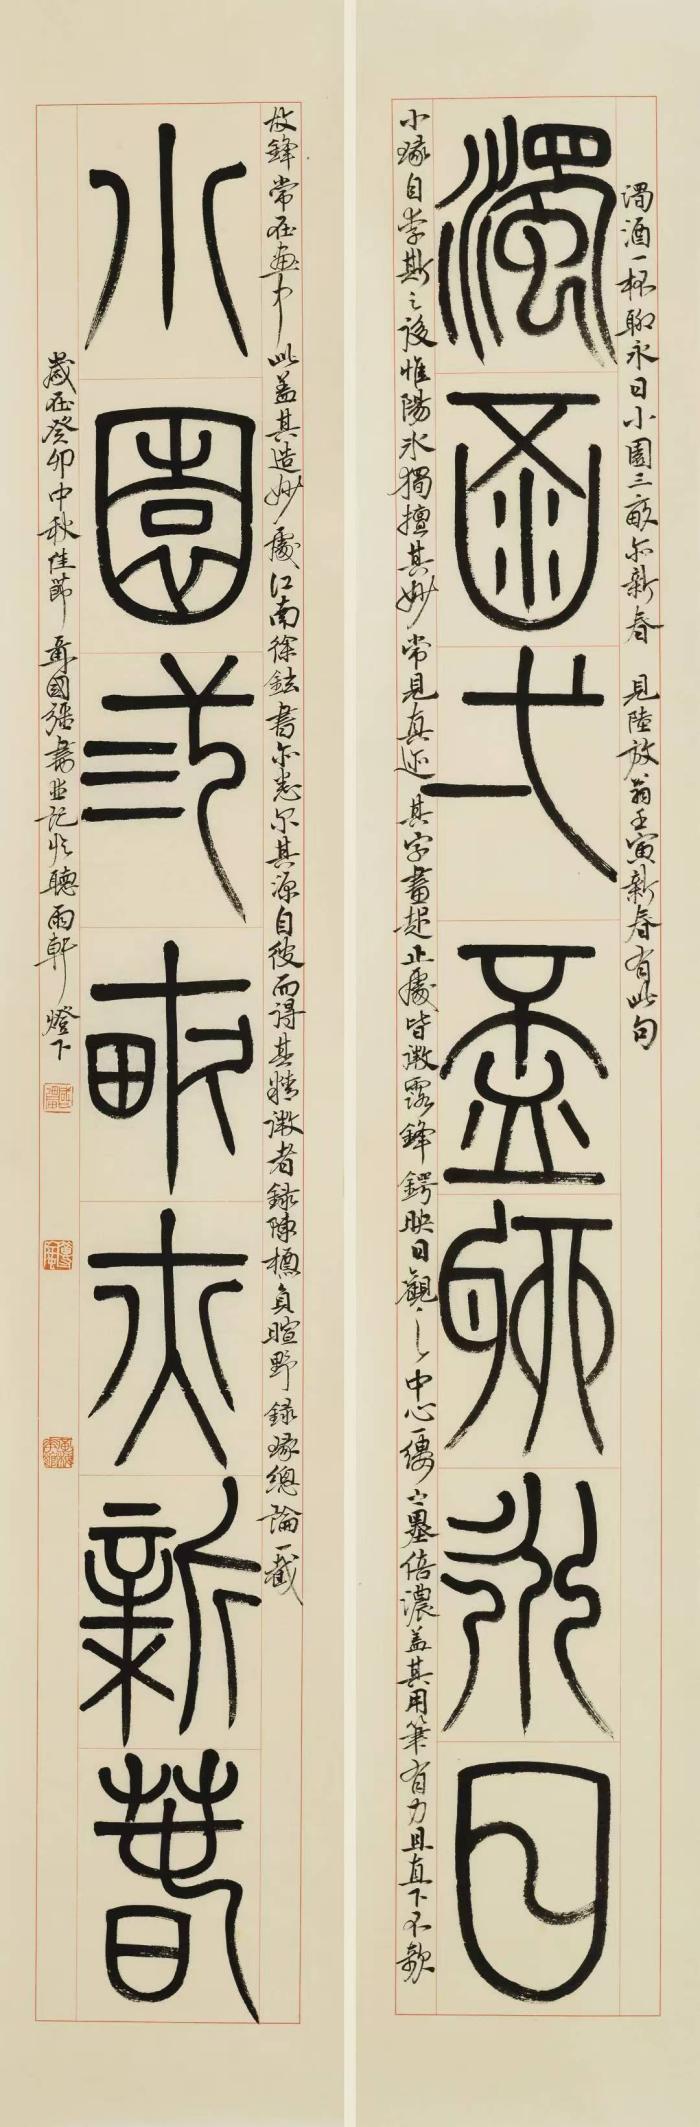 濁酒一杯聊永日小園三畝亦新春 見陸放翁壬寅新春有此句
濁酒弌盃聊永日
小瑑自李斯之後惟陽冰獨擅其妙常見真迹其字畫起止處皆微露鋒鍔映日觀之中心一縷之墨倍濃蓋其用筆有力且直下不欹
故鋒常在畫中此蓋其造妙處江南徐鉉書亦悉爾其源自彼而得其精微者錄陳槱負暄野錄瑑總論一截
小園弎畝亦新春
歲在癸卯中秋佳節聶國強書並記於聽雨軒燈下